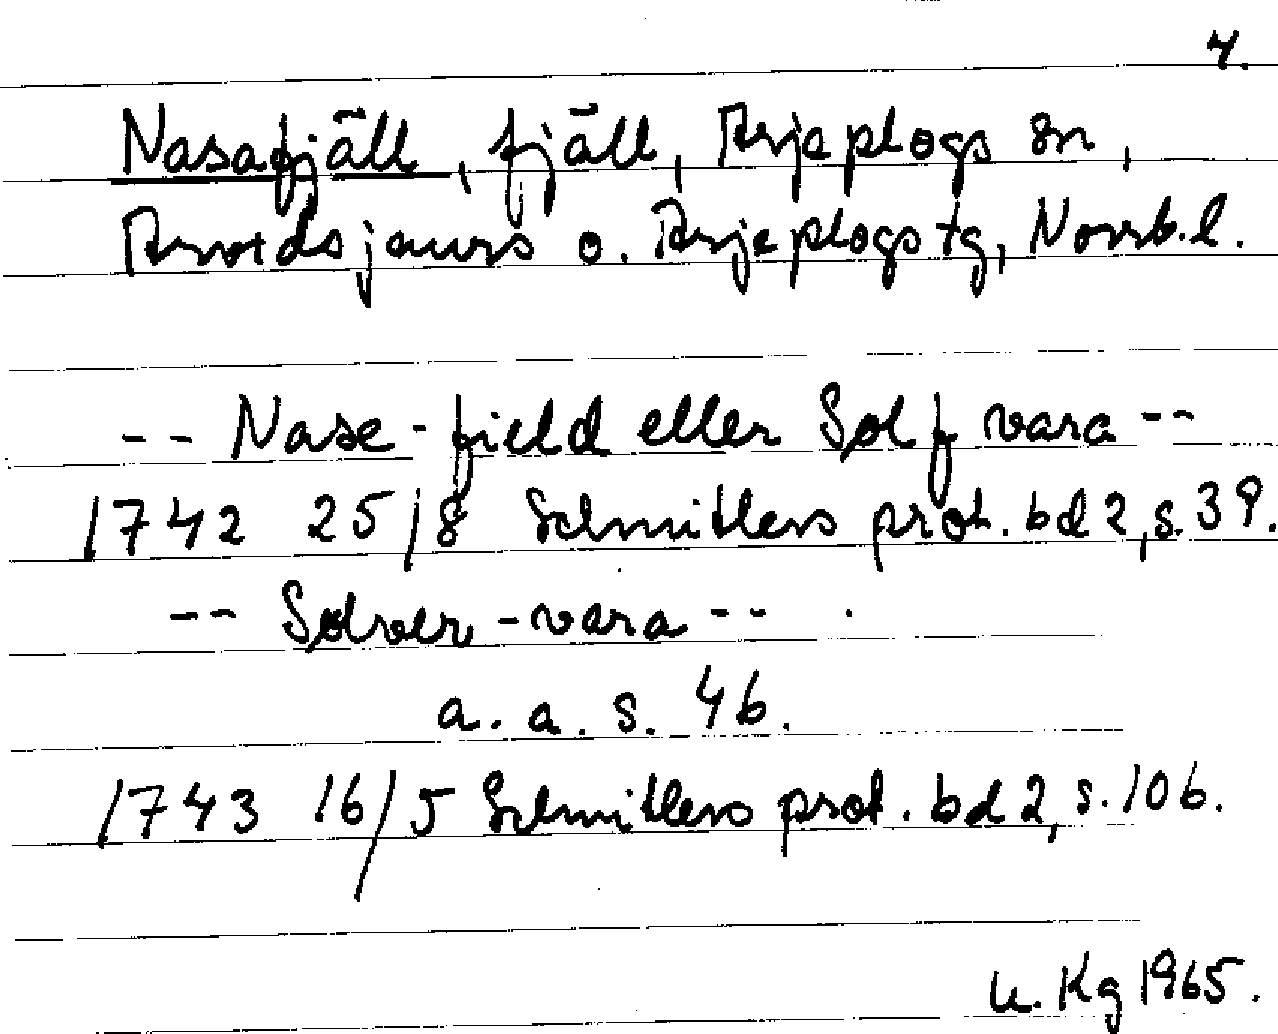 4.
Nasafjäll, fjäll, Arjeplogs sn,
Arvidsjaurs o. Arjeplogs tg, Norrb.l.
-- Nase-field eller Sølf vara --
1742 25/8 Schnitlers prot. bd 2, s. 39.
-- Sølver-vara --
a. a. s. 46.
1743 16/5 Schnitlers prot. bd 2, s. 106.
U. Kg 1965.